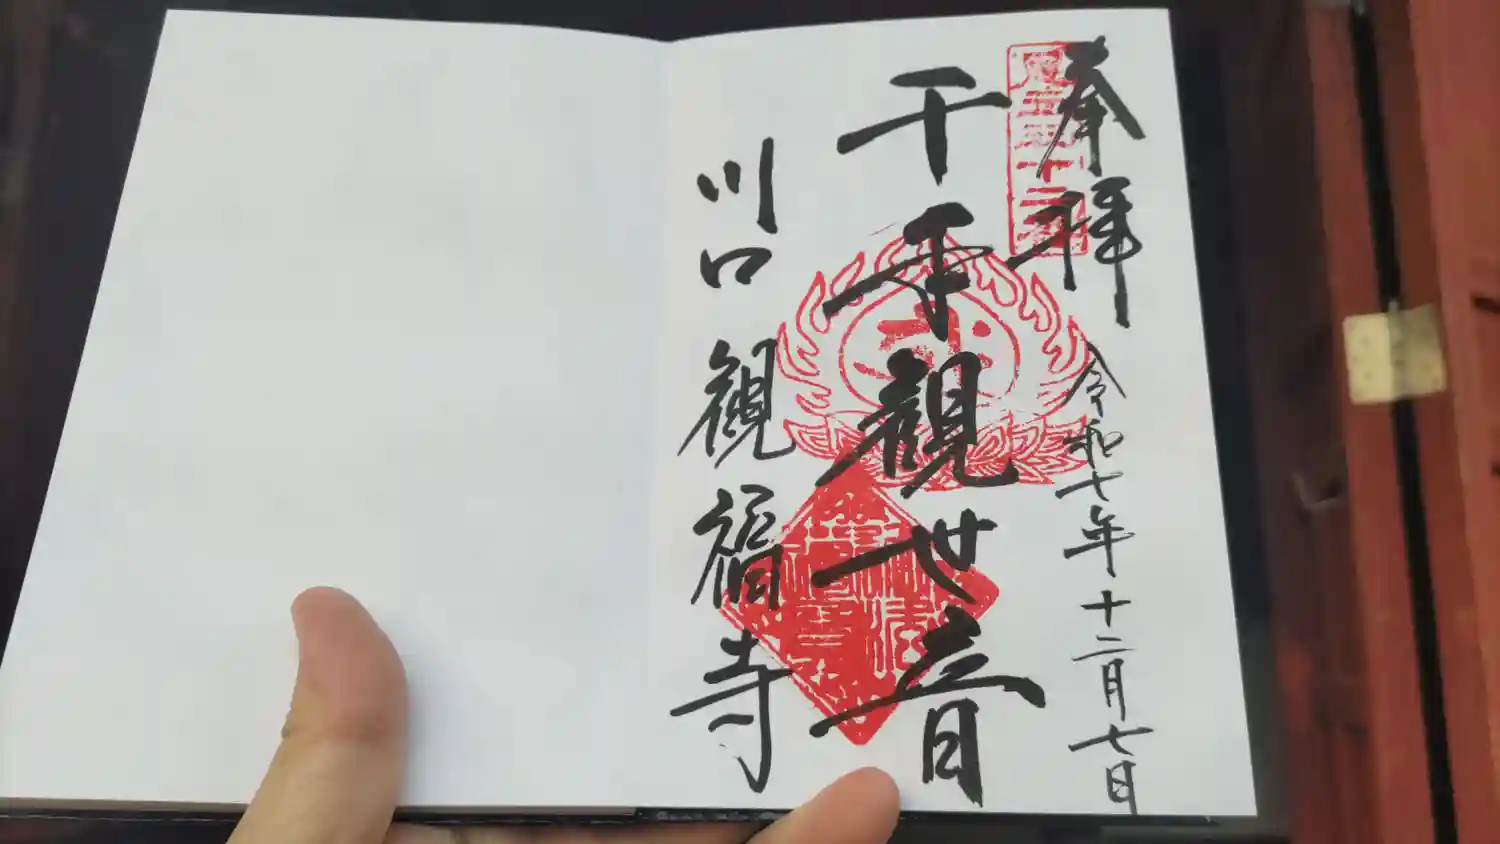 奉拝
令和七年十二月七日
千手観世音
川口
観福寺